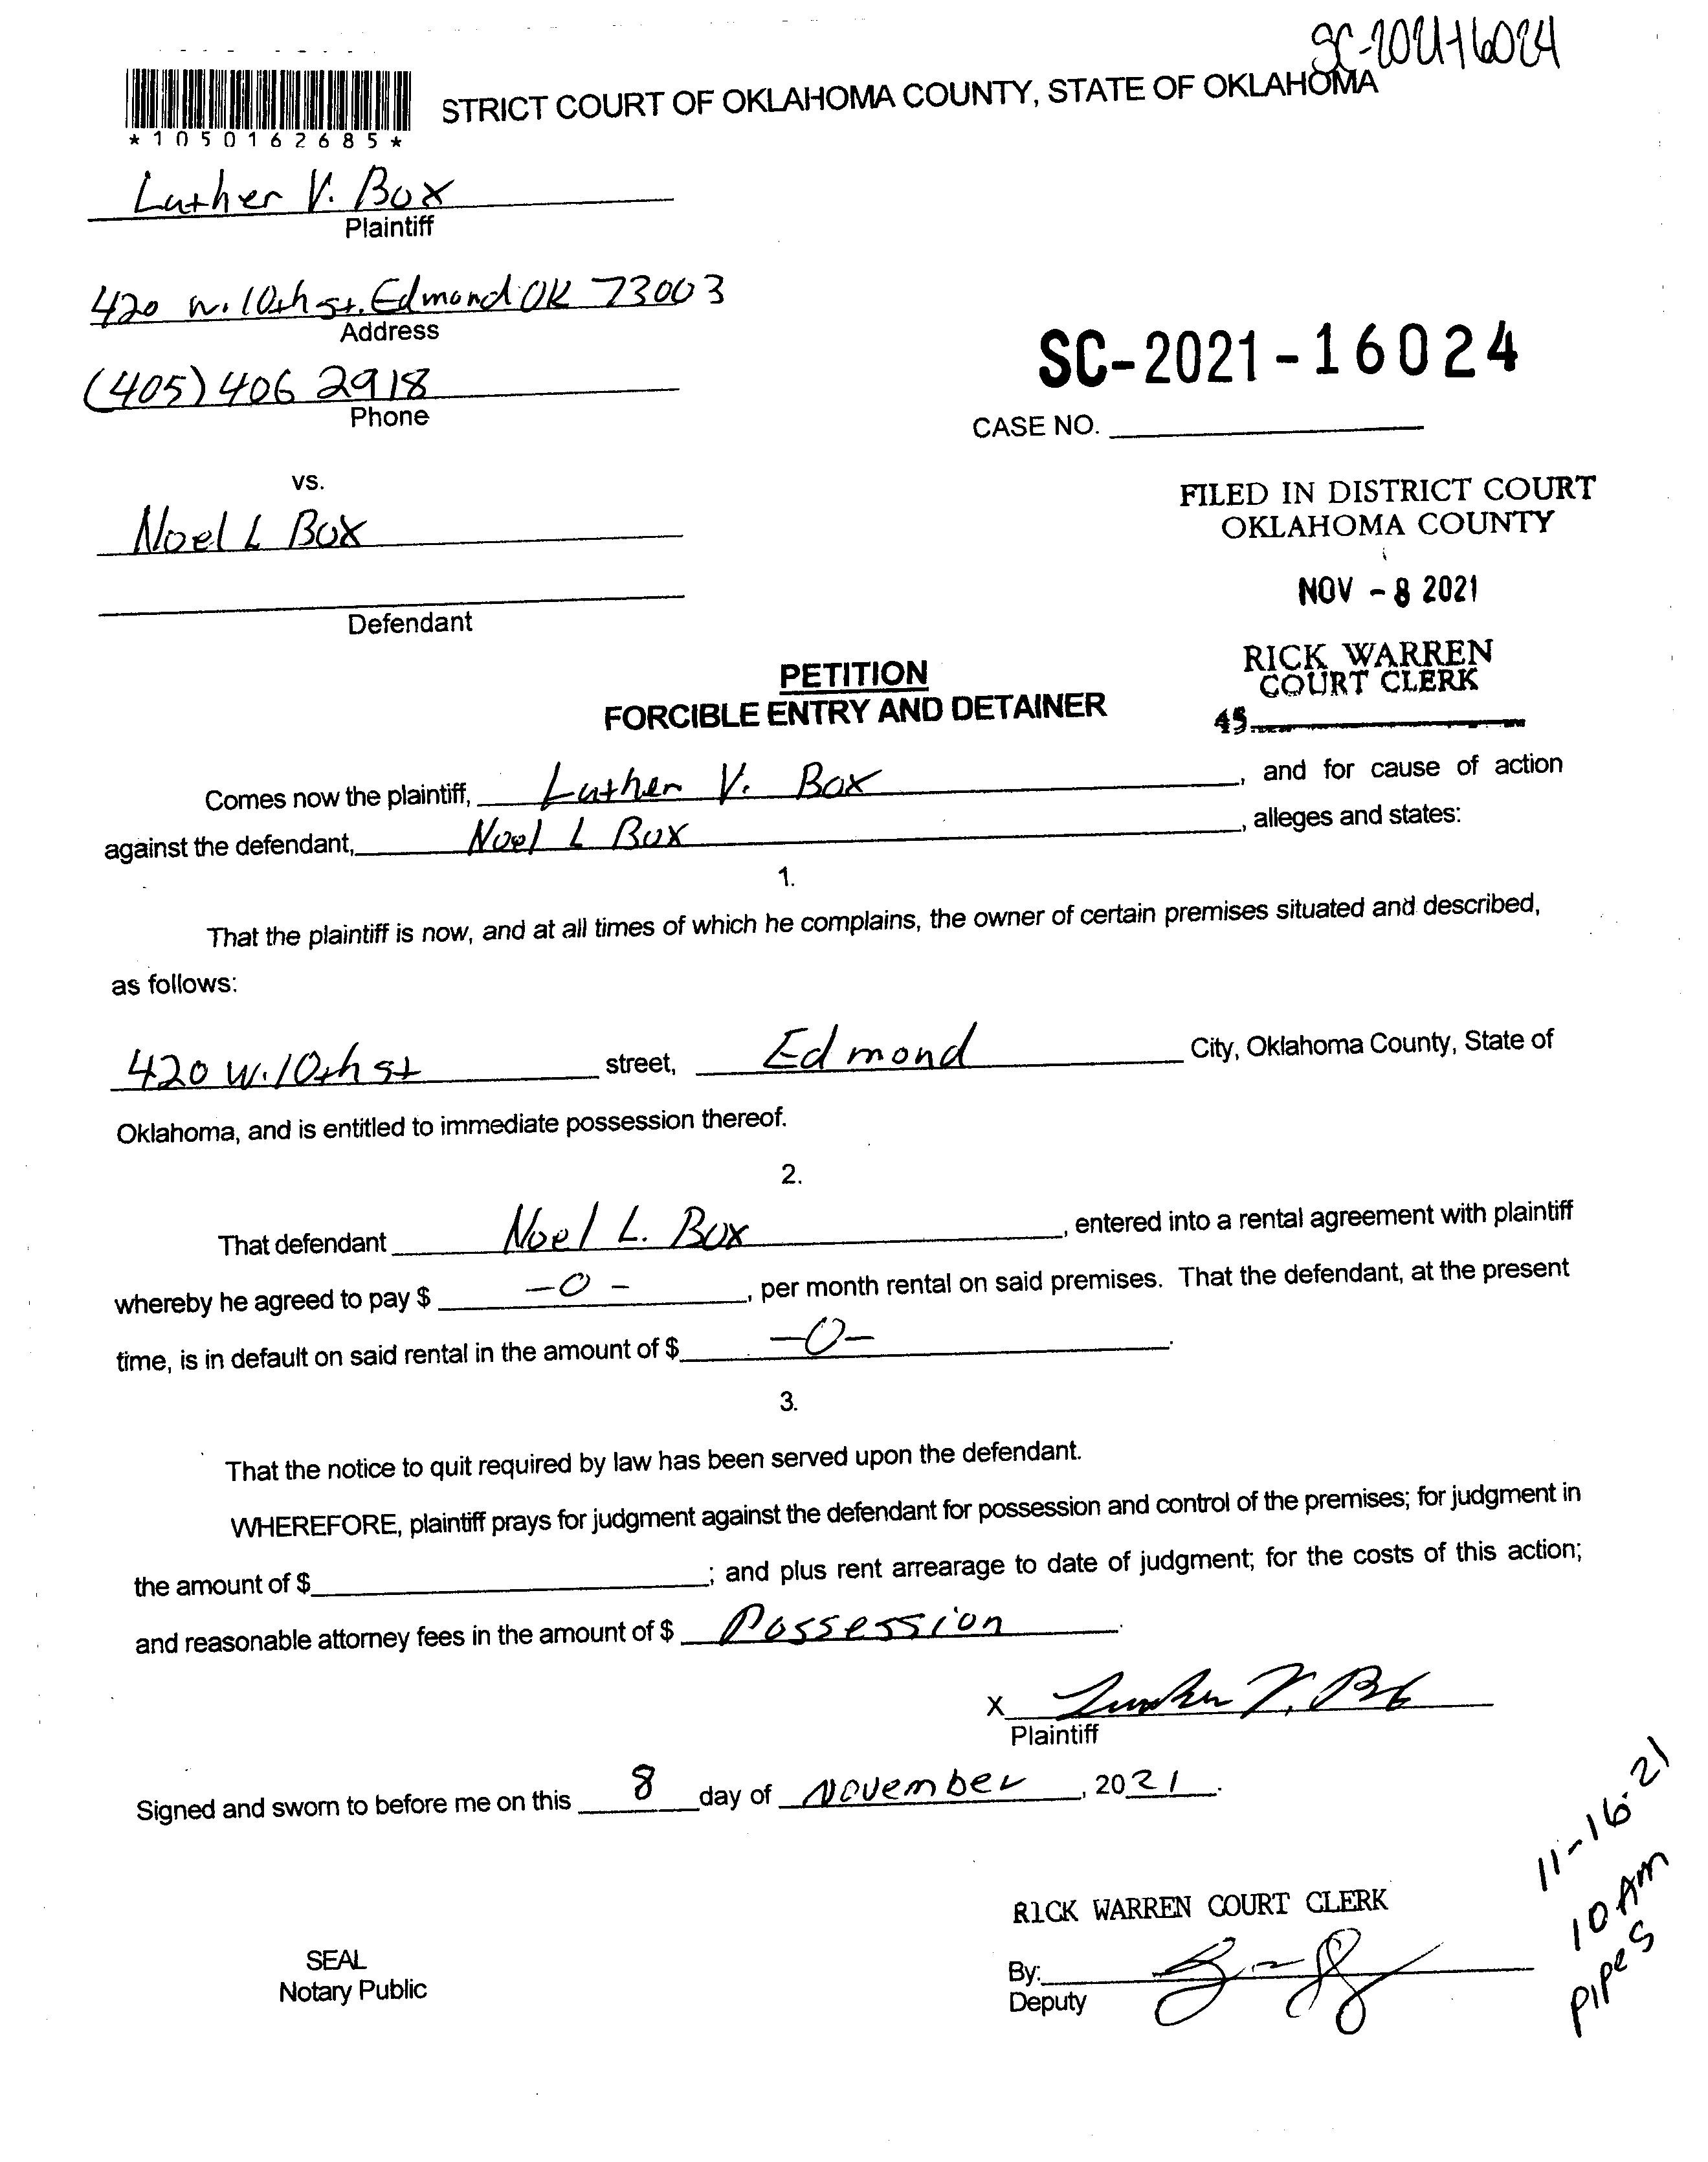 SC-2021-16024
STRICT COURT OF OKLAHOMA COUNTY, STATE OF OKLAHOMA
*1050162685*
Luther V. Box
Plaintiff
420 W. 10th st. Edmond OK 73003
Address
(405) 406 2918
Phone
SC-2021-16024
CASE NO.
vs.
Noel L Box
Defendant
FILED IN DISTRICT COURT
OKLAHOMA COUNTY
NOV - 8 2021
RICK WARREN
COURT CLERK
45
PETITION
FORCIBLE ENTRY AND DETAINER
Comes now the plaintiff, Luther V. Box, and for cause of action
against the defendant, Noel L Box, alleges and states:
1.
That the plaintiff is now, and at all times of which he complains, the owner of certain premises situated and described,
as follows:
420 W. 10th st street, Edmond City, Oklahoma County, State of
Oklahoma, and is entitled to immediate possession thereof.
2.
That defendant Noel L. Box, entered into a rental agreement with plaintiff
whereby he agreed to pay $ -0-, per month rental on said premises. That the defendant, at the present
time, is in default on said rental in the amount of $ -0-.
3.
That the notice to quit required by law has been served upon the defendant.
WHEREFORE, plaintiff prays for judgment against the defendant for possession and control of the premises; for judgment in
the amount of $; and plus rent arrearage to date of judgment; for the costs of this action;
and reasonable attorney fees in the amount of $ Possession.
X Luther V. Box
Plaintiff
Signed and sworn to before me on this 8 day of November, 2021.
11-16-21
10 AM
PIPES
RICK WARREN COURT CLERK
SEAL
Notary Public
By:
Deputy